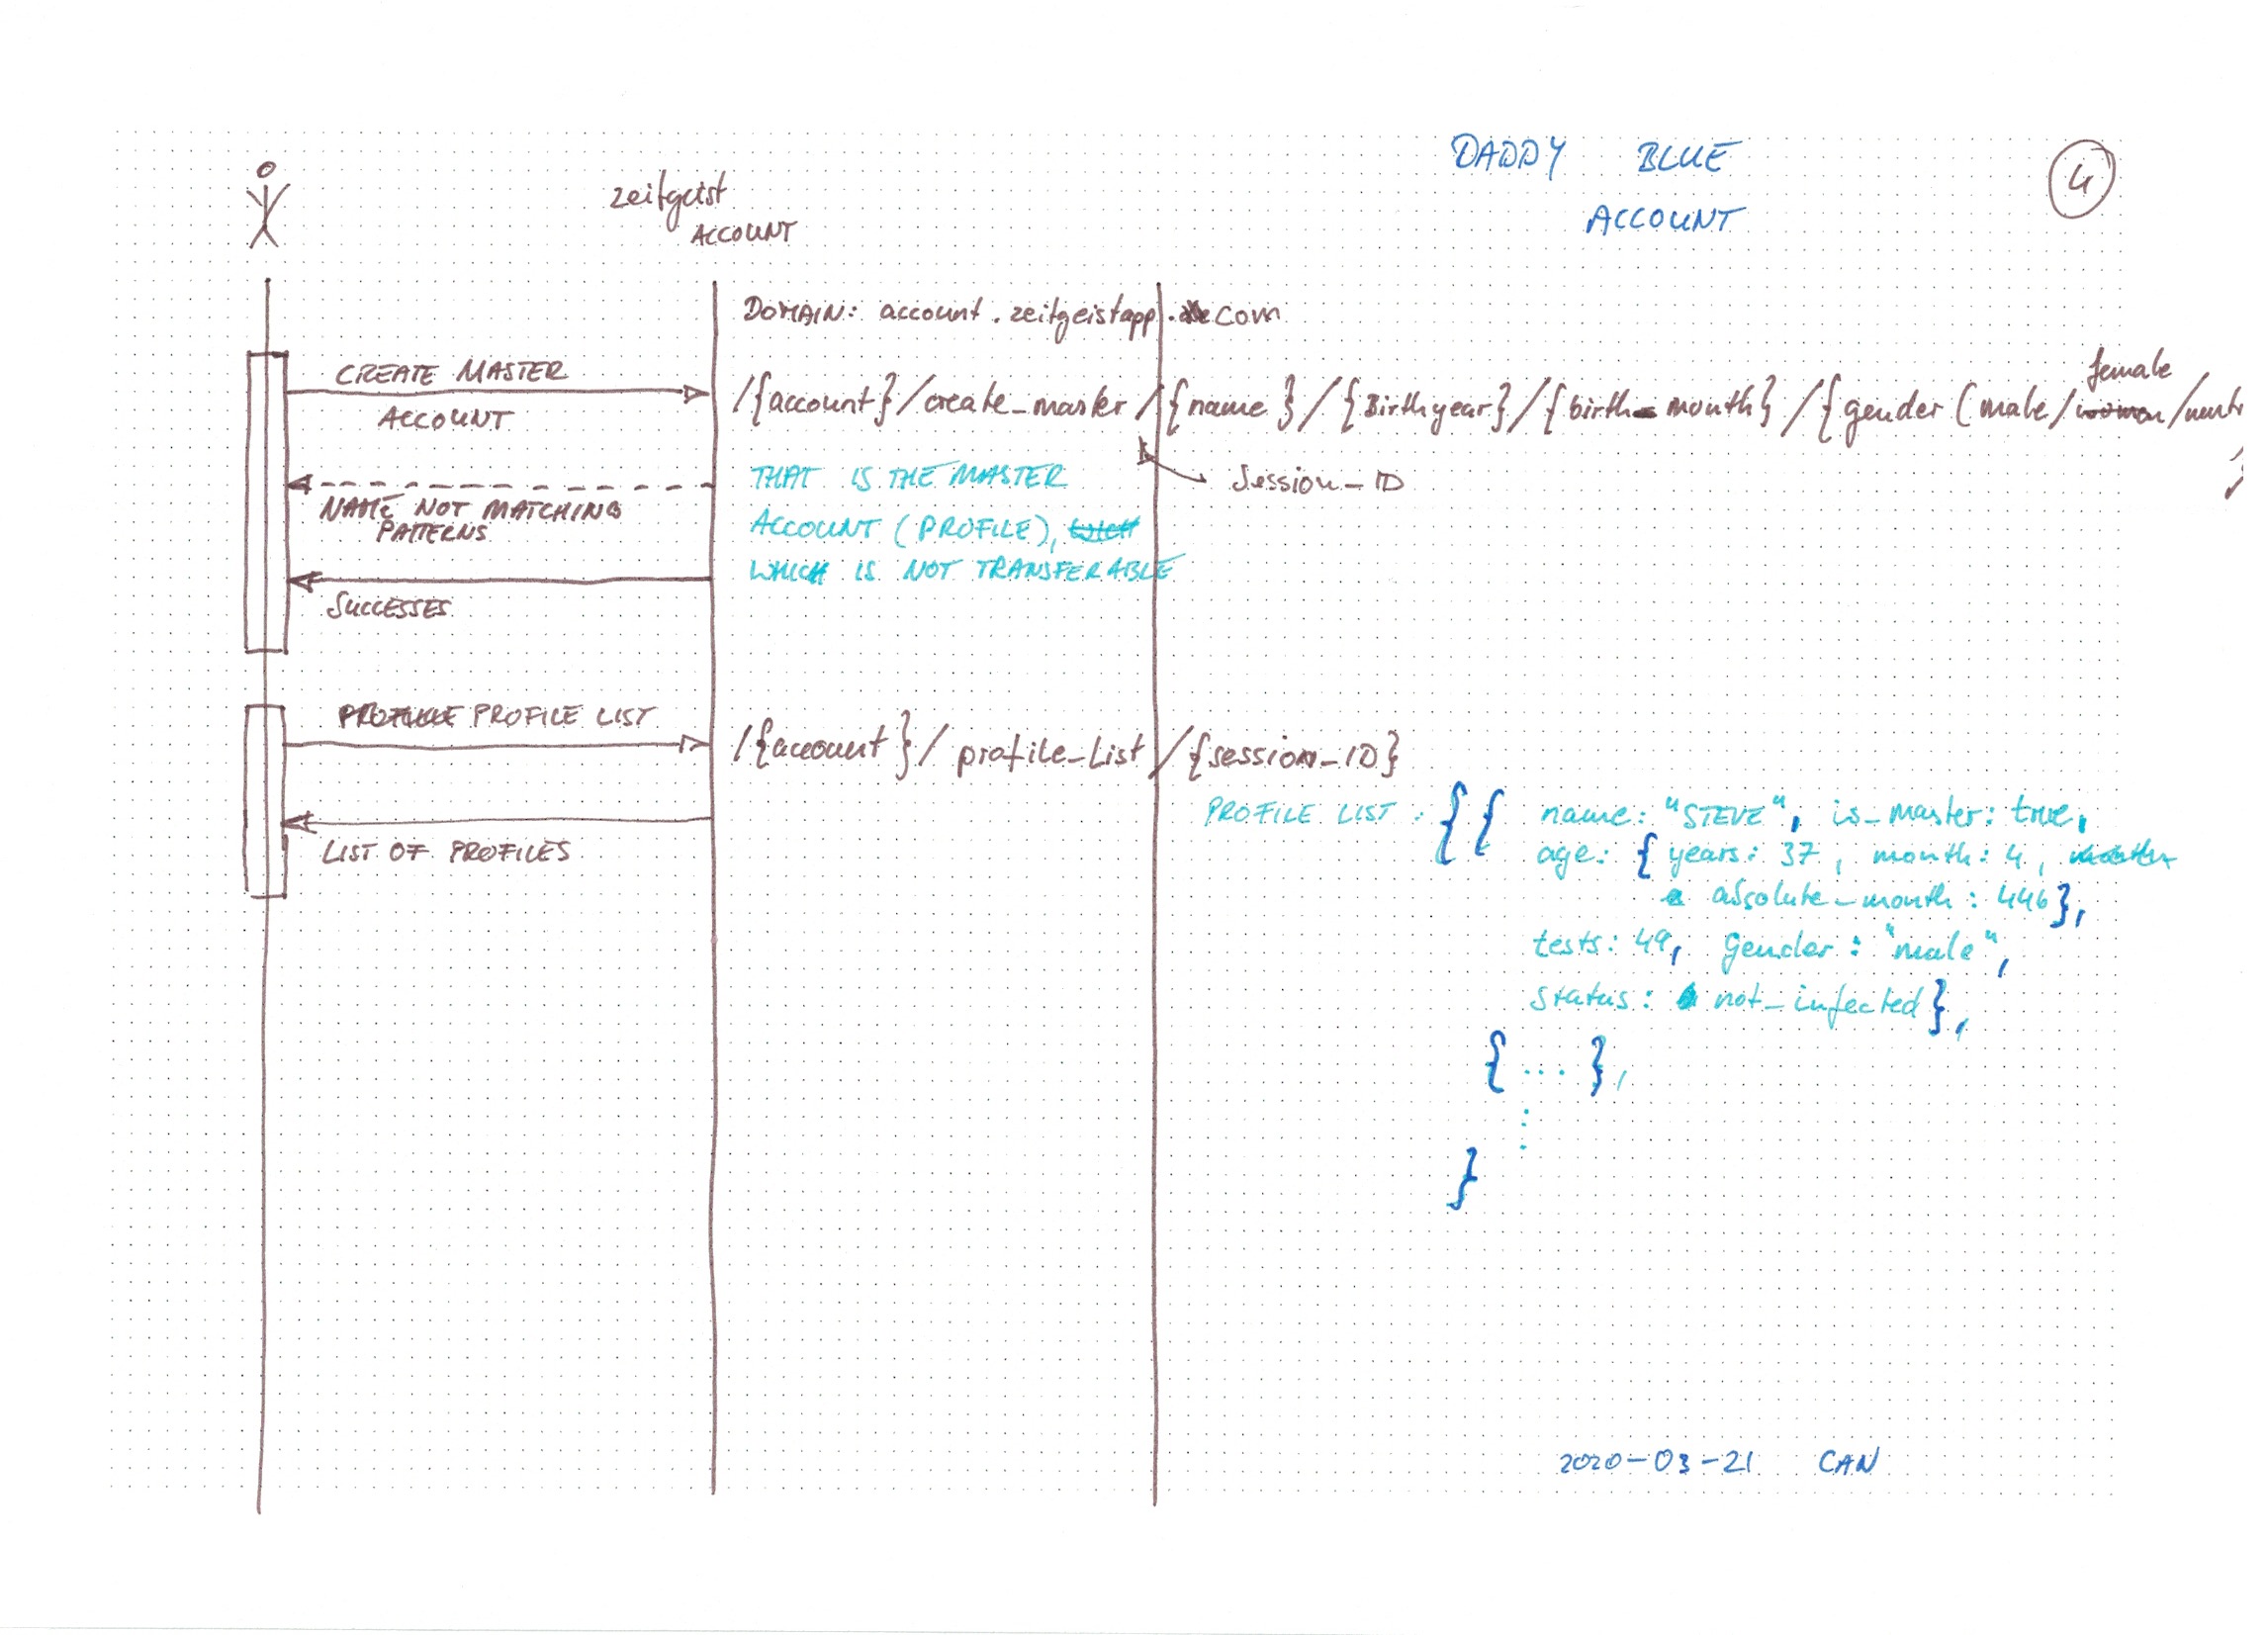 DADDY BLUE
ACCOUNT
4
zeitgeist
ACCOUNT
DOMAIN: account.zeitgeistapp.com
CREATE MASTER
ACCOUNT
female
/{account}/create_master/{name}/{Birthyear}/{birth-month}/{gender (male/woman/neutr
}
Session_ID
NAME NOT MATCHING
PATTERNS
THAT IS THE MASTER
ACCOUNT (PROFILE),
WHICH IS NOT TRANSFERABLE
SUCCESSES
PROFILE LIST
/{account}/profile_List/{session_ID}
LIST OF PROFILES
PROFILE LIST: {{ name: "STEVE", is_master: true,
age: { years: 37, month: 4,
absolute_month: 446},
tests: 49, gender: "male",
status: not_infected},
{...},
⋮
}
2020-03-21 CAN